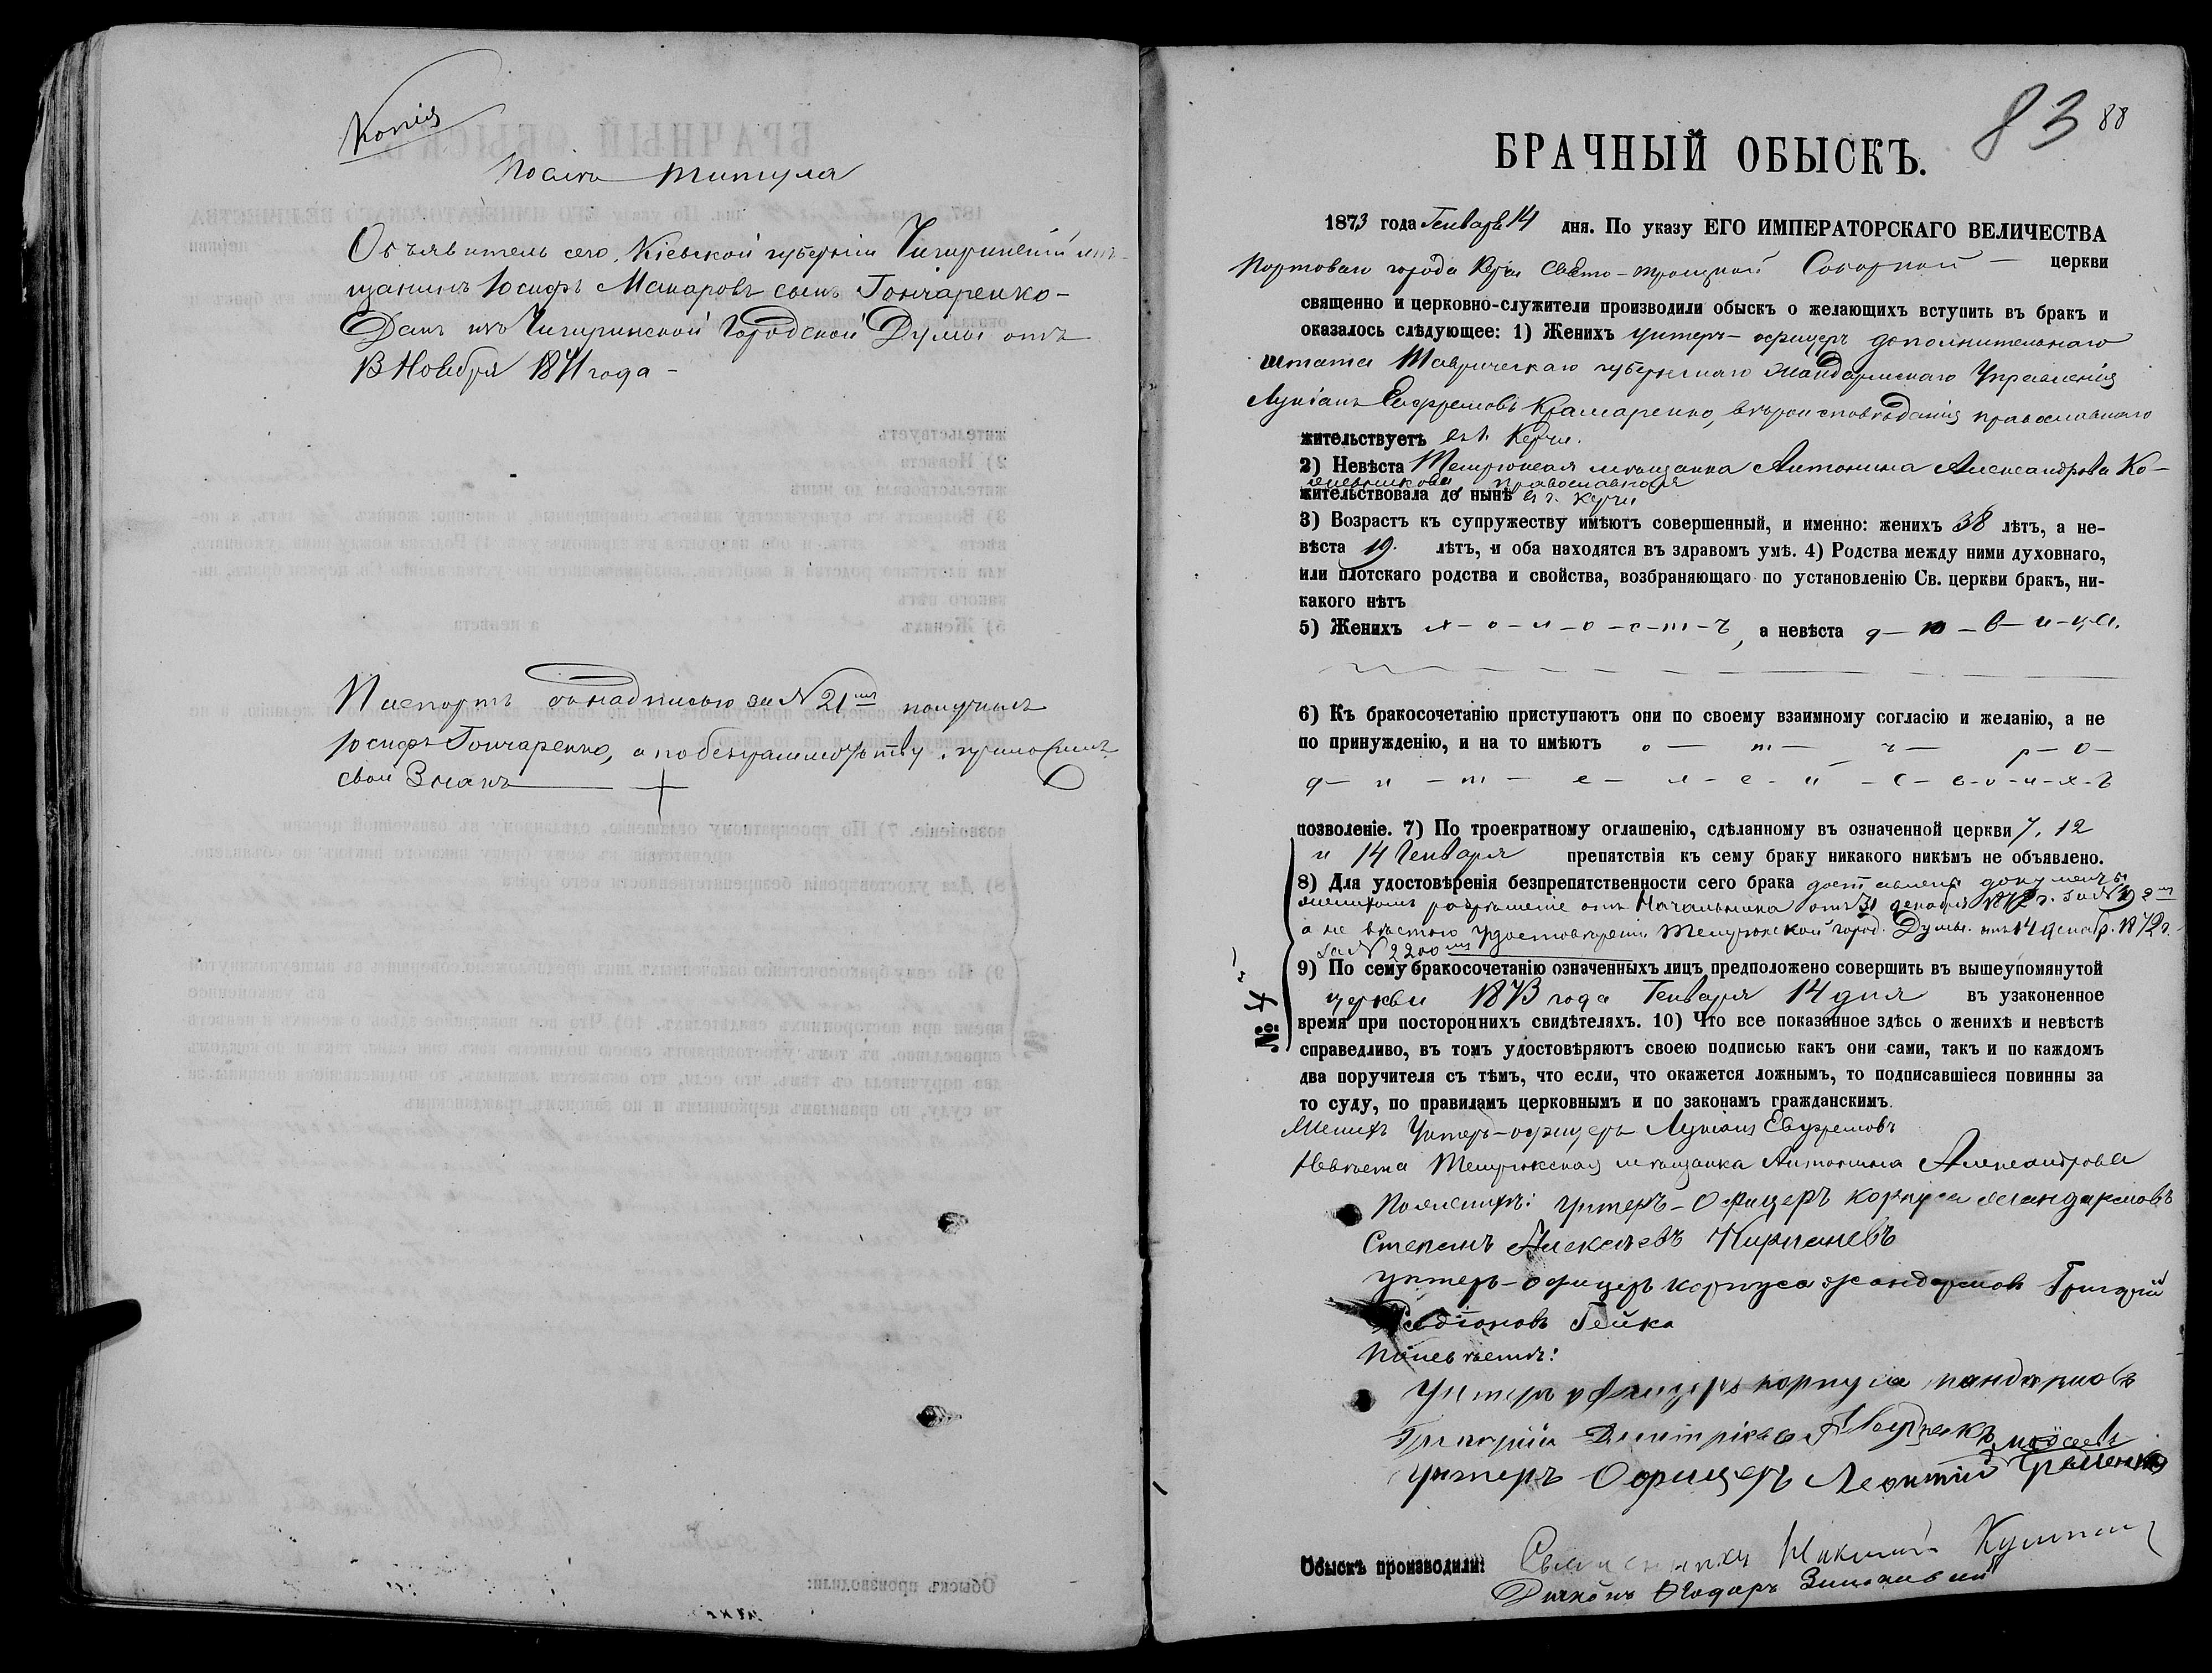 Копія
Послѣ титула
Объявитель сего, Кіевской губерніи Чигиринскій мѣ-
щанинъ Іосифъ Макаровъ сынъ Гончаренко-
Данъ изъ Чигиринской Городской Думы отъ
13 Ноября 1871 года -
Паспортъ съ надписью за № 21мъ получилъ
Іосифъ Гончаренко, а по безграмотству, приложилъ
свой Знакъ +
83 88
БРАЧНЫЙ ОБЫСКЪ.
1873 года Генваря 14 дня. По указу ЕГО ИМПЕРАТОРСКАГО ВЕЛИЧЕСТВА
Портоваго города Керчи Свято-троицкой Соборной — церкви
священно и церковно-служители производили обыскъ о желающихъ вступить въ бракъ и
оказалось слѣдующее: 1) Женихъ унтеръ-офицеръ дополнительнаго
штата Таврическаго губернскаго Жандармскаго Управленія
Лукіанъ Евфремовъ Крамаренко, вѣроисповѣданія православнаго
жительствуетъ въ г. Керчи.
2) Невѣста Темрюкская мѣщанка Антонина Александрова Ко-
православная
жительствовала до нынѣ въ г. Керчи
3) Возрастъ къ супружеству имѣютъ совершенный, и именно: женихъ 38 лѣтъ, а не-
вѣста 19. лѣтъ, и оба находятся въ здравомъ умѣ. 4) Родства между ними духовнаго,
или плотскаго родства и свойства, возбраняющаго по установленію Св. церкви бракъ, ни-
какого нѣтъ
5) Женихъ х-о-л-о-с-т-ъ, а невѣста д-ѣ-в-и-ца.
6) Къ бракосочетанію приступаютъ они по своему взаимному согласію и желанію, а не
по принужденію, и на то имѣютъ о — т — ъ — р-о-
д-и-т-е-л-е-й-с-в-о-и-х-ъ
позволеніе. 7) По троекратному оглашенію, сдѣланному въ означенной церкви 7, 12
и 14 Генваря препятствія къ сему браку никакого никѣмъ не объявлено.
8) Для удостовѣренія безпрепятственности сего брака доставлены документы
женихомъ разрѣшеніе отъ Начальника отъ 31 декабря 1872 г.
а невѣстою удостовѣреніе Темрюкской город. Думы отъ 14 декабр. 1872 г.
за № 2200мъ
№ 4
9) По сему бракосочетанію означенныхъ лицъ предположено совершить въ вышеупомянутой
церкви 1873 года Генваря 14 дня въ узаконенное
время при постороннихъ свидѣтеляхъ. 10) Что все показанное здѣсь о женихѣ и невѣстѣ
справедливо, въ томъ удостовѣряютъ своею подписью какъ они сами, такъ и по каждомъ
два поручителя съ тѣмъ, что если, что окажется ложнымъ, то подписавшіеся повинны за
то суду, по правиламъ церковнымъ и по законамъ гражданскимъ.
Женихъ Унтеръ-офицеръ Лукіанъ Евфремовъ
Невѣста Темрюкская мѣщанка Антонина Александрова
По женихѣ: Унтеръ-Офицеръ корпуса жандармовъ
Степанъ Алексѣевъ
унтеръ-офицеръ корпуса жандармовъ Григорій
Гейко
По невѣстѣ:
Унтеръ офицеръ корпуса жандармовъ
Григорій Дмитріевъ
Унтеръ Офицеръ Леонтій
Обыскъ производили: Священникъ
Дьяконъ Ѳеодоръ